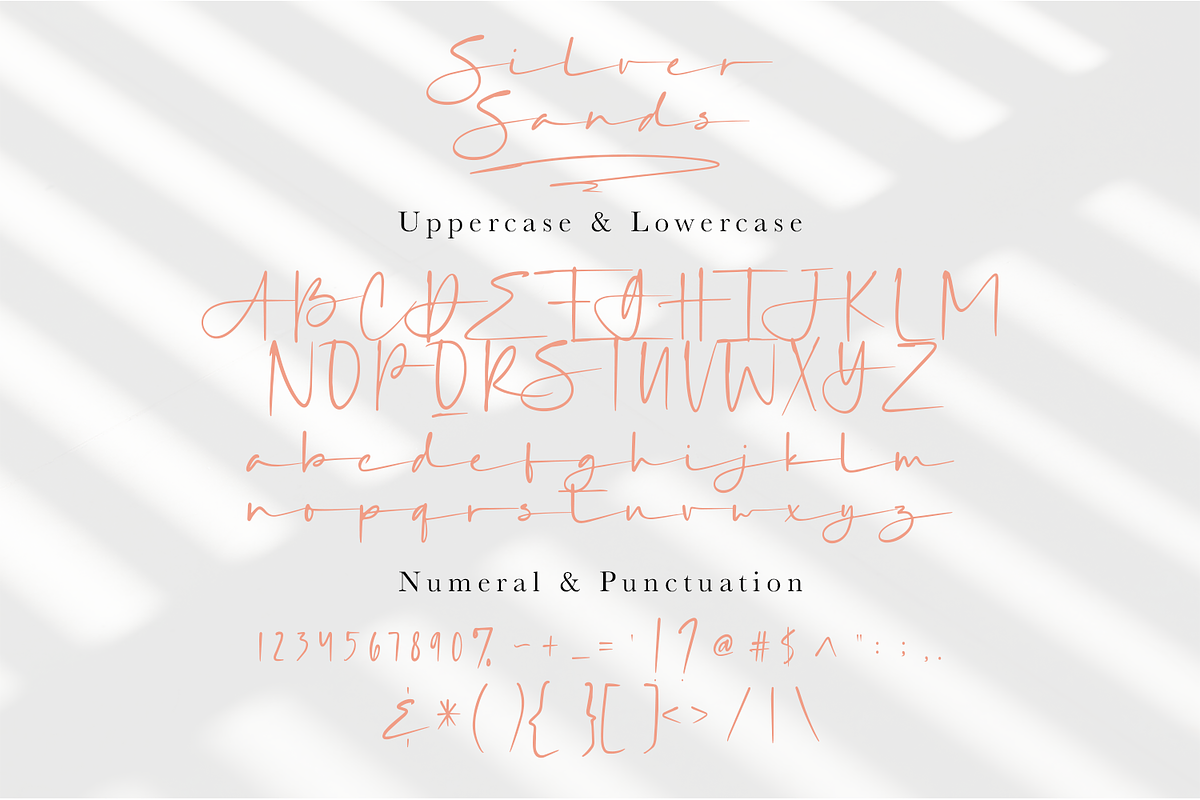 Silver
Sands
Uppercase & Lowercase
ABCDEFGHIJKLM
NOPQRSTUVWXYZ
abcdefghijklm
nopqrstuvwxyz
Numeral & Punctuation
1234567890% ~ + _ = ' ! ? @ # $ ^ " : ; , .
& * ( ) { } [ ] < > / | \